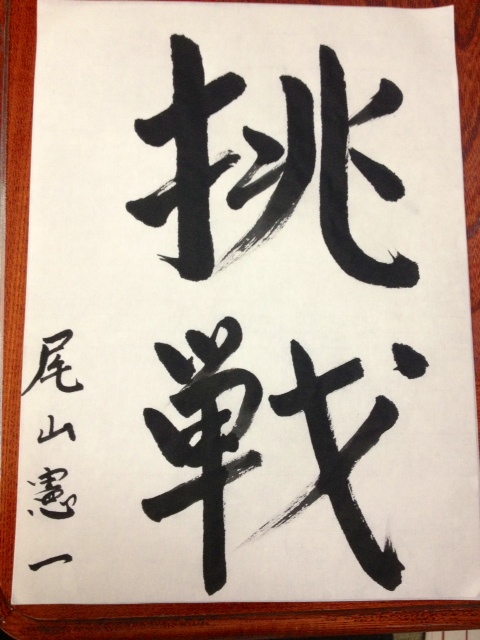 挑戦
尾山憲一